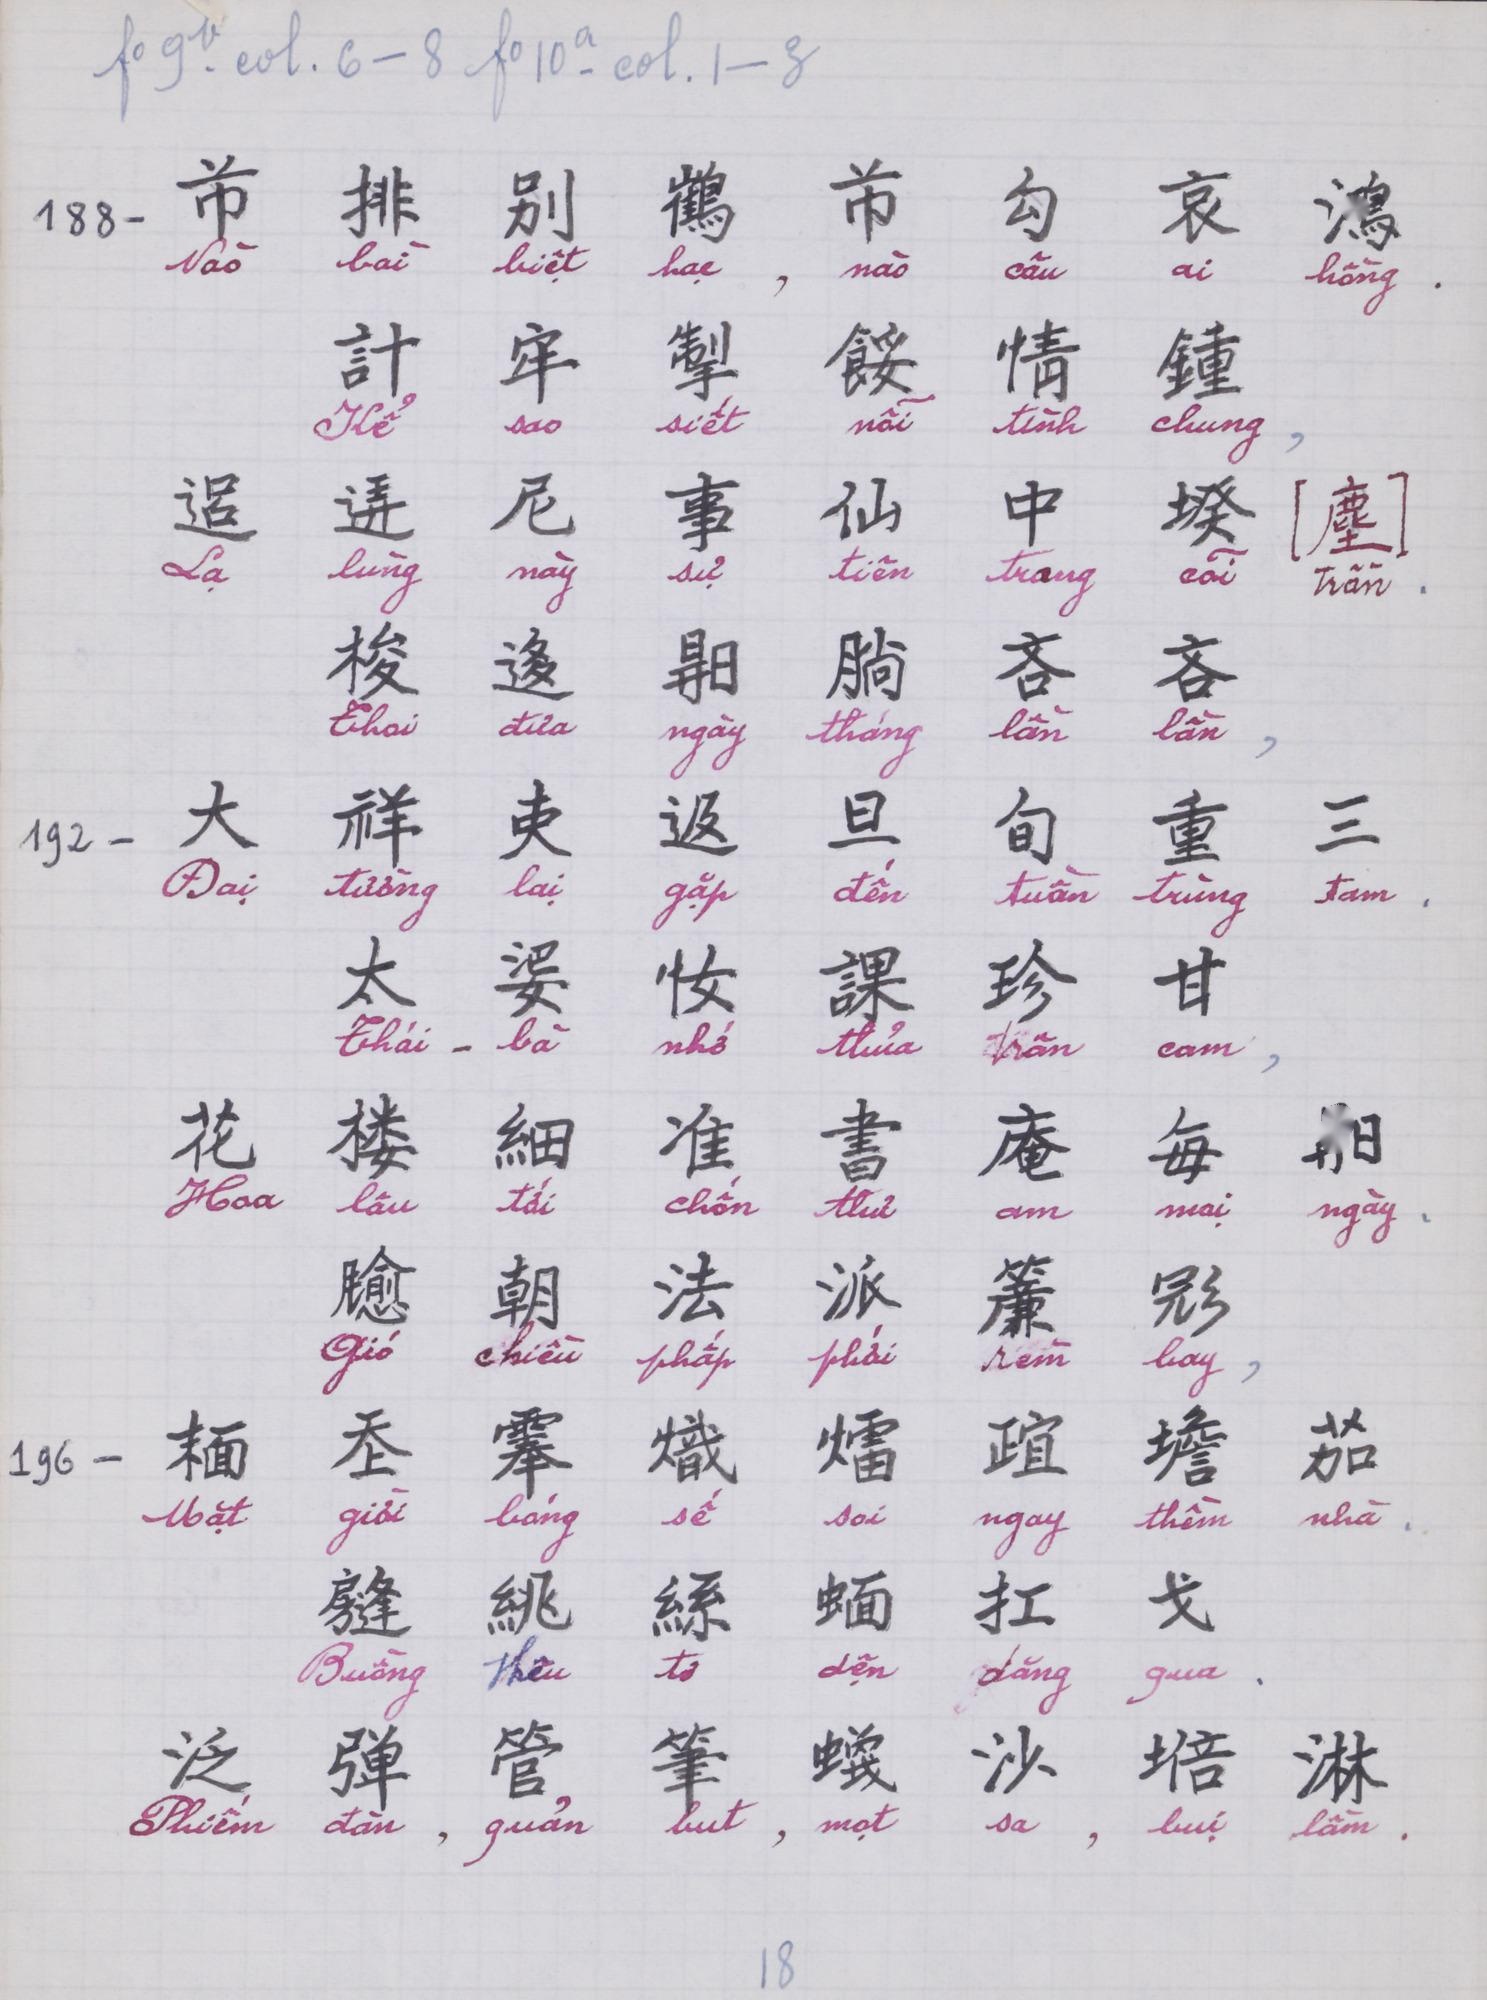 fº 9ᵇ. col. 6 – 8 fº 10ᵃ – col. 1 – 3
188 – 芇 排 别 鶴 芇 勾 哀 鴻
Nào bài biệt hạc , nào câu ai hồng .
計 牢 掣 餒 情 鍾
Kể sao siết nỗi tình chung ,
迢 逬 尼 事 仙 中 堗 [塵]
Lạ lùng này sự tiên trang cõi trần .
梭 迻 𣈜 腡 吝 吝
Thoi đưa ngày tháng lần lần ,
192 – 大 祥 吏 返 旦 旬 重 三
Đại tường lại gặp đến tuần trùng tam .
太 婆 𢘾 課 珍 甘
Thái – bà nhớ thủa trân cam ,
花 楼 細 准 書 庵 每 𣈜
Hoa lâu tới chốn thư am mọi ngày .
朝 法 派 簾
Gió chiều phấp phới rèm bay ,
196 – 𡗶 熾 檐 茄
Mặt giời bóng sế soi ngay thềm nhà .
縫 絩 絲 扛 戈
Buồng thêu tơ dện dăng qua .
泛 弹 管 筆 沙 培 淋
Phiếm đàn , quản but , mọt sa , bụi lầm .
18